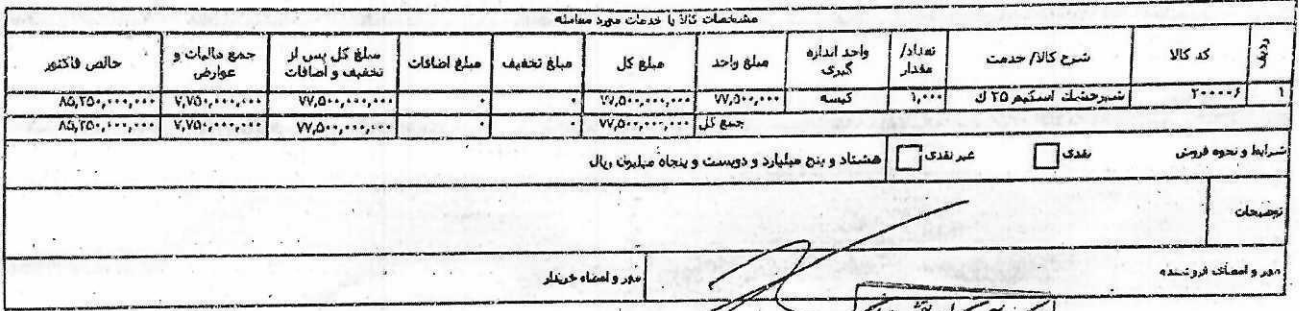 مشخصات کالا یا خدمات مورد معامله
ردیف کد کالا شرح کالا/ خدمت تعداد/ مقدار واحد اندازه گیری مبلغ واحد مبلغ کل مبلغ تخفیف مبلغ اضافات مبلغ کل پس از تخفیف و اضافات جمع مالیات و عوارض خالص فاکتور
۱ ۲۰۰۰۰۶ شیرخشک اسکیم ۲۵ ک ۱,۰۰۰ کیسه ۷۷,۵۰۰,۰۰۰ ۷۷,۵۰۰,۰۰۰,۰۰۰ ۰ ۰ ۷۷,۵۰۰,۰۰۰,۰۰۰ ۷,۷۵۰,۰۰۰,۰۰۰ ۸۵,۲۵۰,۰۰۰,۰۰۰
جمع کل ۷۷,۵۰۰,۰۰۰,۰۰۰ ۰ ۰ ۷۷,۵۰۰,۰۰۰,۰۰۰ ۷,۷۵۰,۰۰۰,۰۰۰ ۸۵,۲۵۰,۰۰۰,۰۰۰
شرایط و نحوه فروش نقدی غیر نقدی هشتاد و پنج میلیارد و دویست و پنجاه میلیون ریال
توضیحات
مهر و امضای فروشنده مهر و امضاء خریدار